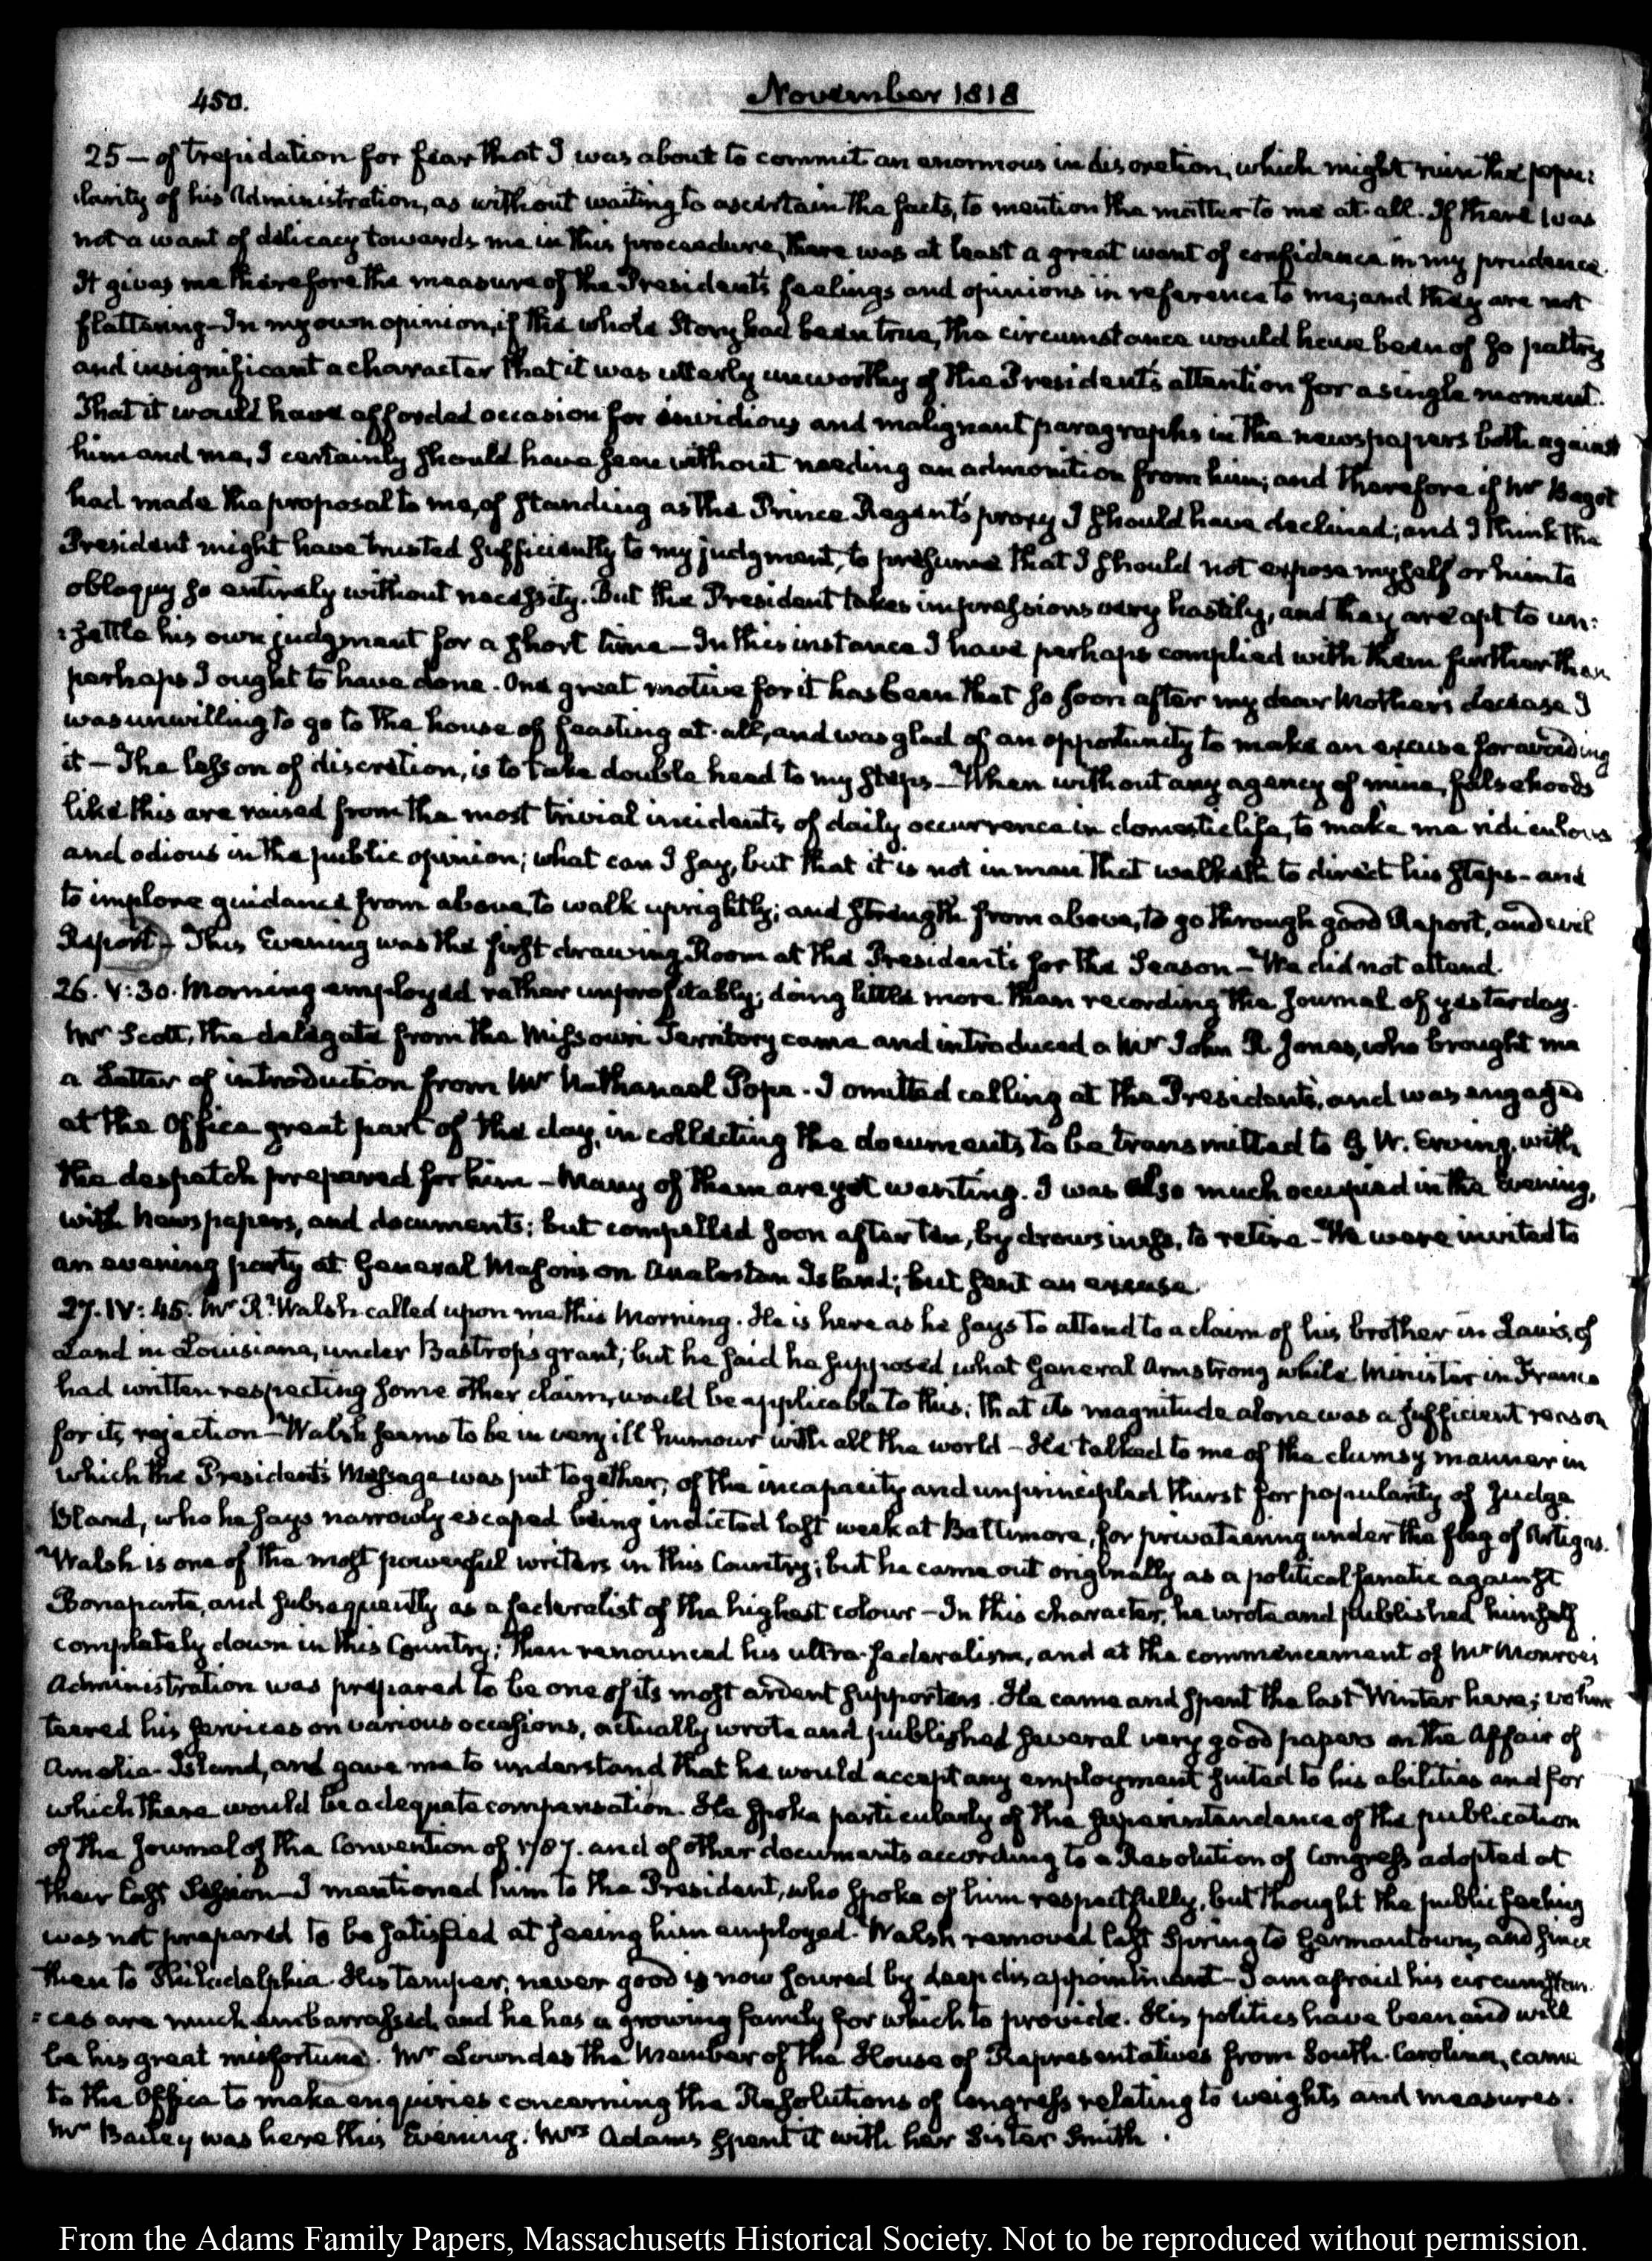 450.
November 1818
25 — of trepidation for fear that I was about to commit an enormous indiscretion, which might ruin the popu:
larity of his Administration, as without waiting to ascertain the facts, to mention the matter to me at all. If there was
not a want of delicacy towards me in this proceedure, there was at least a great want of confidence in my prudence.
It gives me therefore the measure of the President's feelings and opinions in reference to me; and they are not
flattering — In my own opinion, if the whole Story had been true, the circumstance would have been of so paltry
and insignificant a character that it was utterly unworthy of the President's attention for a single moment.
That it would have afforded occasion for invidious and malignant paragraphs in the newspapers both against
him and me, I certainly should have seen without needing an admonition from him; and therefore if Mr Bagot
had made the proposal to me, of standing as the Prince Regent's proxy I should have declined; and I think the
President might have trusted sufficiently to my judgment, to presume that I should not expose myself or him to
obloquy so entirely without necessity. But the President takes impressions very hastily, and they are apt to un:
:settle his own judgment for a short time — In this instance I have perhaps complied with them further than
perhaps I ought to have done. One great motive for it has been that so soon after my dear Mother's decease I
was unwilling to go to the house of feasting at all, and was glad of an opportunity to make an excuse for avoiding
it — The lesson of discretion, is to take double heed to my steps — When without any agency of mine, falsehoods
like this are raised from the most trivial incidents of daily occurrence in domestic life, to make me ridiculous
and odious in the public opinion; what can I say, but that it is not in man that walketh to direct his steps — and
to implore guidance from above, to walk uprightly; and strength from above, to go through good Report, and evil
Report — This Evening was the first drawing Room at the President's for the Season — We did not attend.
26. V:30. Morning employed rather unprofitably; doing little more than recording the Journal of yesterday.
Mr Scott, the delegate from the Missouri Territory came and introduced a Mr John R Jones, who brought me
a Letter of introduction from Mr Nathanael Pope. I omitted calling at the President's, and was engaged
at the Office great part of the day, in collecting the documents to be transmitted to G. W. Erving, with
the despatch prepared for him — Many of them are yet wanting. I was also much occupied in the Evening,
with Newspapers, and documents; but compelled soon after ten, by drowsiness, to retire — We were invited to
an evening party at General Mason's on Analostan Island; but sent an excuse.
27. IV:45. Mr R. Walsh called upon me this Morning. He is here as he says to attend to a claim of his brother in Law's, of
Land in Louisiana, under Bastrop's grant; but he said he supposed what General Armstrong while Minister in France
had written respecting some other claim, would be applicable to this; that its magnitude alone was a sufficient reason
for its rejection — Walsh seems to be in very ill humour with all the world — He talked to me of the clumsy manner in
which the President's Message was put together; of the incapacity and unprincipled thirst for popularity of Judge
Bland, who he says narrowly escaped being indicted last week at Baltimore, for privateering under the flag of Artigas.
Walsh is one of the most powerful writers in this Country; but he came out originally as a political fanatic against
Bonaparte, and subsequently as a federalist of the highest colour — In this character, he wrote and published himself
completely down in this Country; then renounced his ultra-federalism, and at the commencement of Mr Monroe's
Administration was prepared to be one of its most ardent supporters. He came and spent the last Winter here; volun
teered his services on various occasions, actually wrote and published several very good papers on the Affair of
Amelia-Island, and gave me to understand that he would accept any employment suited to his abilities and for
which there would be adequate compensation. He spoke particularly of the superintendence of the publication
of the Journal of the Convention of 1787. and of other documents according to a Resolution of Congress adopted at
their last Session — I mentioned him to the President, who spoke of him respectfully, but thought the public feeling
was not prepared to be satisfied at seeing him employed. Walsh removed last Spring to Germantown, and since
then to Philadelphia. His temper, never good is now soured by deep disappointment — I am afraid his circumstan
:ces are much embarrassed, and he has a growing family for which to provide. His politics have been and will
be his great misfortune. Mr Lowndes the Member of the House of Representatives from South-Carolina, came
to the Office to make enquiries concerning the Resolutions of Congress relating to weights and measures.
Mr Bailey was here this Evening. Mrs Adams spent it with her Sister Smith.
From the Adams Family Papers, Massachusetts Historical Society. Not to be reproduced without permission.